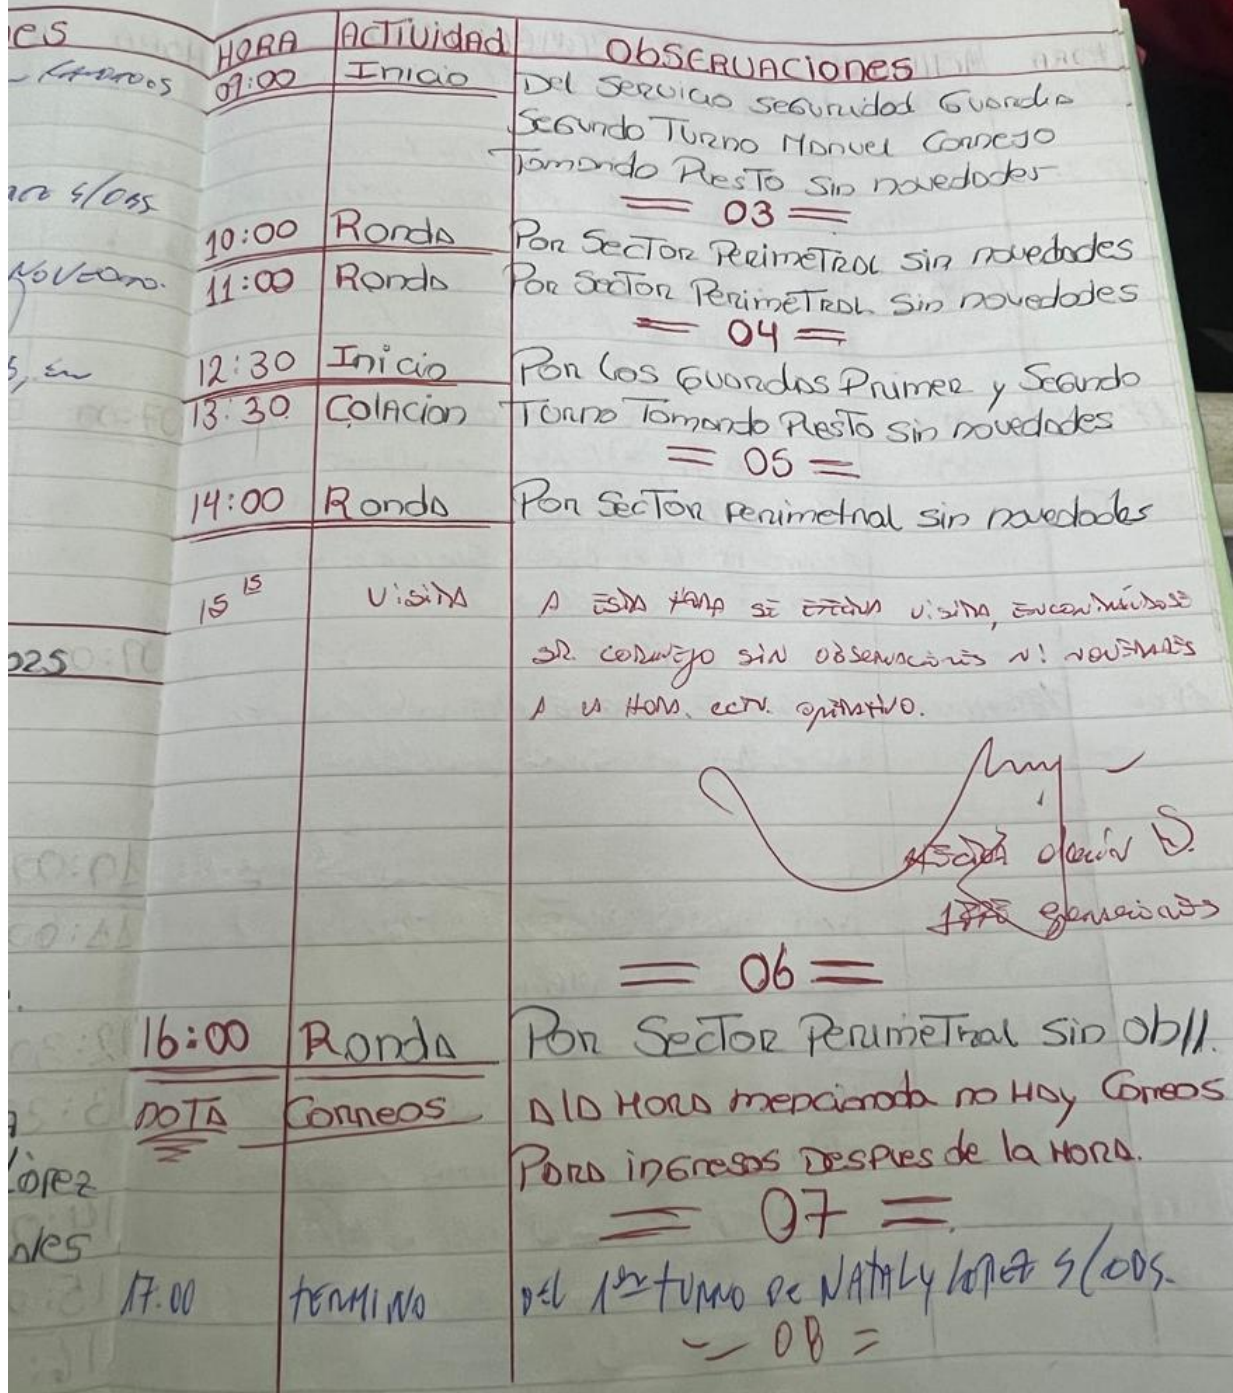 es
HORA ACTIVIDAD OBSERVACIONES
09:00 Inicio Del Servicio Seguridad Guardia
Segundo Turno Manuel Cornejo
Tomando Puesto Sin novedades
= 03 =
s/obs
10:00 Ronda Por Sector Perimetral Sin novedades
11:00 Ronda Por Sector Perimetral Sin novedades
= 04 =
12:30 Inicio Por los Guardias Primer y Segundo
13:30 Colacion Turno Tomando Puesto Sin novedades
= 05 =
14:00 Ronda Por Sector perimetral sin novedades
15 15 Visita A esta hora se efectua visita, encontrandose
025 Sr. Cornejo sin observaciones ni novedades
A la hora. cctv. operativo.
= 06 =
16:00 Ronda Por Sector Perimetral Sin ob//.
NOTA Correos A la Hora mencionada no Hay Correos
Para ingresos Despues de la Hora.
López
= 07 =
ales
17.00 TERMINO DEL 1er TURNO DE NATHALY LOPEZ S/ODS.
= 08 =